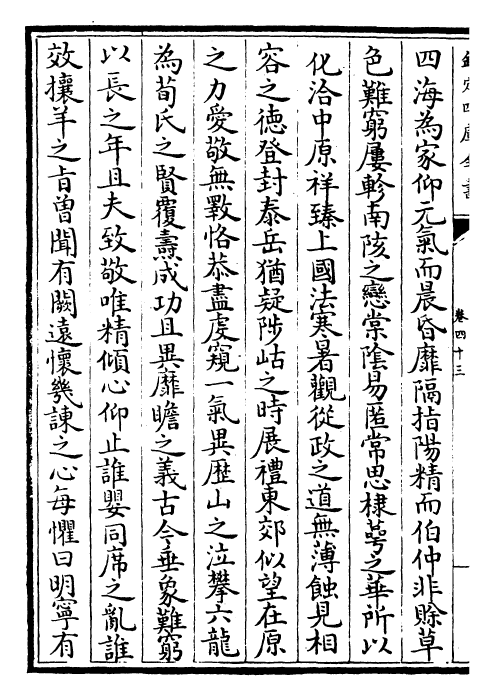 欽定四庫全書
卷四十三
四海為家仰元氣而晨昏靡隔指陽精而伯仲非賒草
色難窮屢軫南陔之戀棠陰易匿常思棣萼之華所以
化洽中原祥臻上國法寒暑觀從政之道無薄蝕見相
容之徳登封泰岳猶疑陟岵之時展禮東郊似望在原
之力愛敬無斁恪恭盡虔窺一氣異歴山之泣攀六龍
為荀氏之賢覆燾成功且異靡瞻之義古今垂象難窮
以長之年且夫致敬唯精傾心仰止誰嬰同席之亂誰
效攘羊之㫖曽聞有闕遠懐幾諫之心每懼曰明寧有